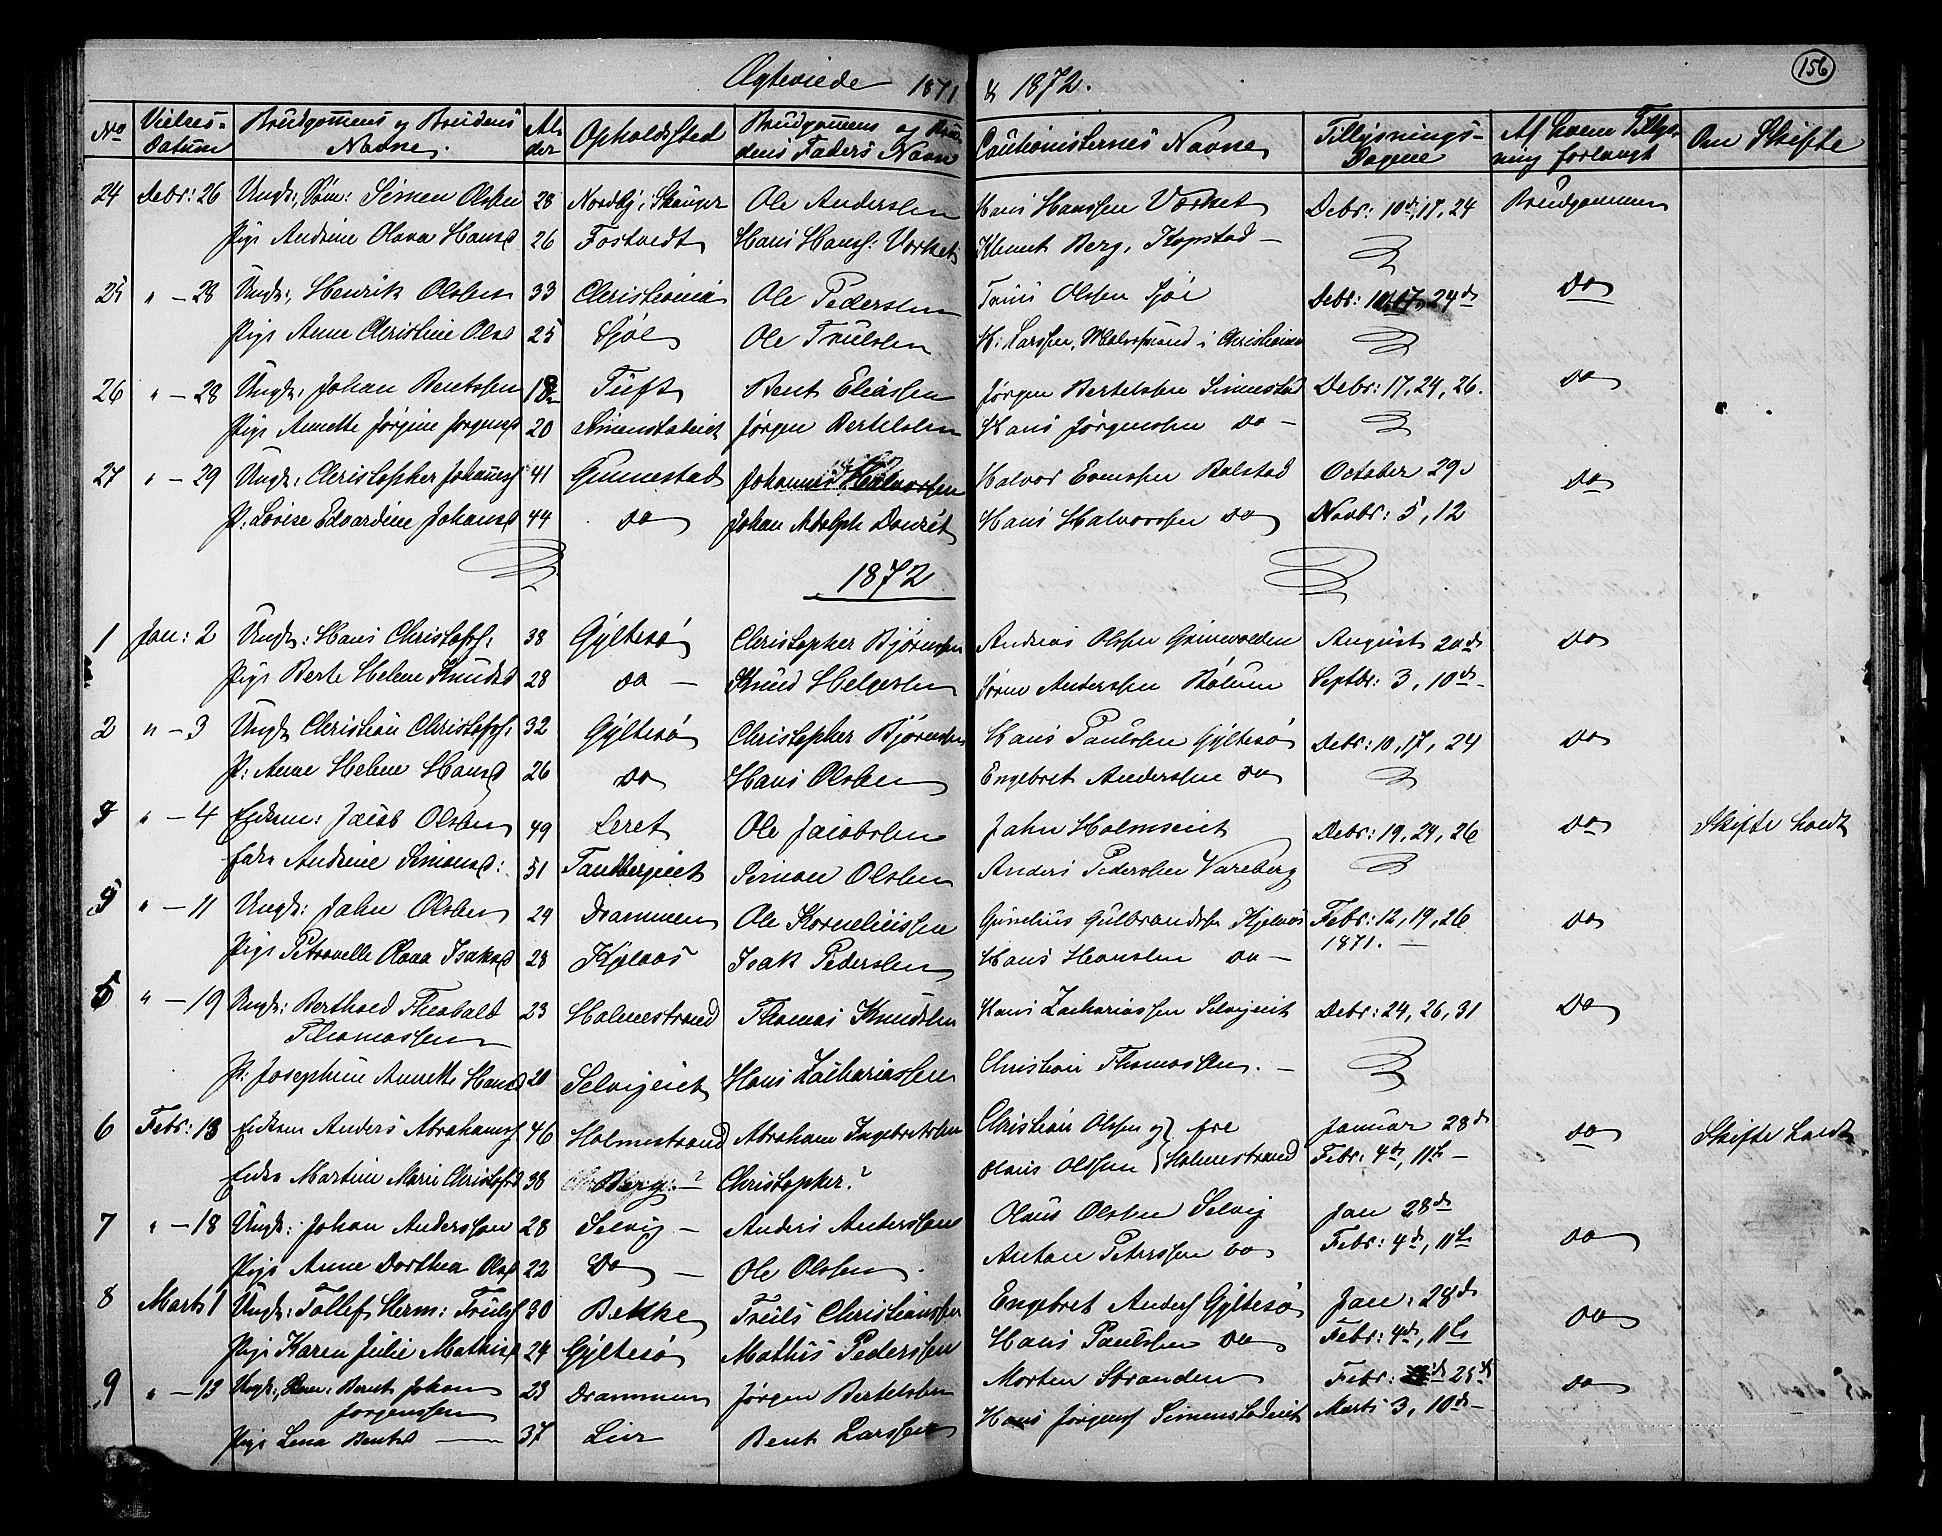 156
Ægteviede 1871 & 1872.
No Vielses- Datum Brudgommens og Brudens Navne. Al- der Opholdssted Brudgommens og Bru- dens Faders Navn Cautionisternes Navne Tillysnings- Dagene Af hvem Tillys- ning forlangt Om Skifte
24 Debr: 26 Ungk: Simen Olsen 28 Nordby, Skouger Ole Anderssen Hans Hanssen Værket Debr: 10de, 17, 24 Brudgommen
Pige Andrine Olava Hansd 26 Fostvedt Hans Hanss: Værket Klemet Berg, Kopstad
25 " - 28 Ungk: Henrik Olssen 33 Christiania Ole Pederssen Truls Olssen Sjøl Debr: 10, 17, 24de do
Pige Anne Christine Olsd 25 Sjøl Ole Trulssen H: Larssen, i Christiania
26 " - 28 Ungk: Johan Bentssen 18 Tuft Bent Eliassen Jørgen Bertelssen Simenstad Debr: 17, 24, 26. do
Pige Annette Jørgine Jørgensd 20 Simenstadeiet Jørgen Bertelssen Hans Jørgenssen do -
27 " - 29 Ungk: Christopher Johanness 41 Gunnestad Johannes Halvorssen Halvor Evenssen Rolstad October 29 do
P: Lovise Edvardine Johansd 44 do Johan Adolph Hans Halvorssen do Novbr: 5, 12
1872
1 Jan: 2 Ungk: Hans Christophs: 38 Gyltesø Christopher Bjørnssen Andreas Olssen August 20de do
Pige Berte Helene Knudsd 28 do - Knud Helgessen Søren Anderssen Septbr: 3, 10de
2 " - 3 Ungk Christian Christophs: 32 Gyltesø Christopher Bjørnssen Hans Paulssen Gyltesø Debr: 10, 17, 24 do
P: Anne Helene Hansd 26 do Hans Olssen Engebret Anderssen do
3 " - 4 Enkem: Jacob Olssen 49 Leret Ole Jacobssen John Holmseiet Debr: 19, 24, 26 do Skifte holdt
Enke Andrine Simonsd: 51 Tandbergeiet Simon Olssen Anders Pederssen Vareberg
" - 11 Ungk: John Olssen 29 Drammen Ole Korneliussen Gunelius Gulbrandss Kjelaas Febr: 12, 19, 26 1871. - do
Pige Petronelle Olava Isaksd 28 Kjelaas Isak Pederssen Hans Hanssen do -
5 " - 19 Ungk: Berthold Theobald 23 Holmestrand Thomas Knudssen Hans Zachariassen Selvigeiet Debr: 24, 26, 31 do
Thomassen
P: Josephine Annette Hansd 20 Selvigeiet Hans Zachariassen Christian Thomassen. -
6 Febr: 13 Enkem Anders Abrahams 46 Holmestrand Abraham Ingebretssen Christian Olssen og } fre Januar 28de do Skifte holdt
Enke Martine Marie Christophsd 38 Berg: - ? Christopher? Olaus Olssen } Holmestrand Febr: 4de, 11te -
7 " - 18 Ungk: Johan Anderssen 28 Selvig - Anders Anderssen Olaus Olssen Selvig Jan 28de do
Pige Anne Dorthea Olsd 22 Do - Ole Olssen Anton Peterssen do Febr: 4de, 11te
8 Marts 1 Ungk: Tollef Herm: Truls 30 Bakke Truls Christianssen Engebret Anders Gyltesø Jan: 28de do
Pige Karen Julie Mathisd 24 Gyltesø Mathis Pederssen Hans Paulssen do Febr: 4de, 11te
9 " - 13 Ungk: Bernt Johan 23 Drammen Jørgen Bertelssen Morten Stranden Febr: 25de do
Jørgenssen
Pige Lena Bentsd 37 Lier Bent Larssen Hans Jørgens Simenstadeiet Marts 3, 10de -